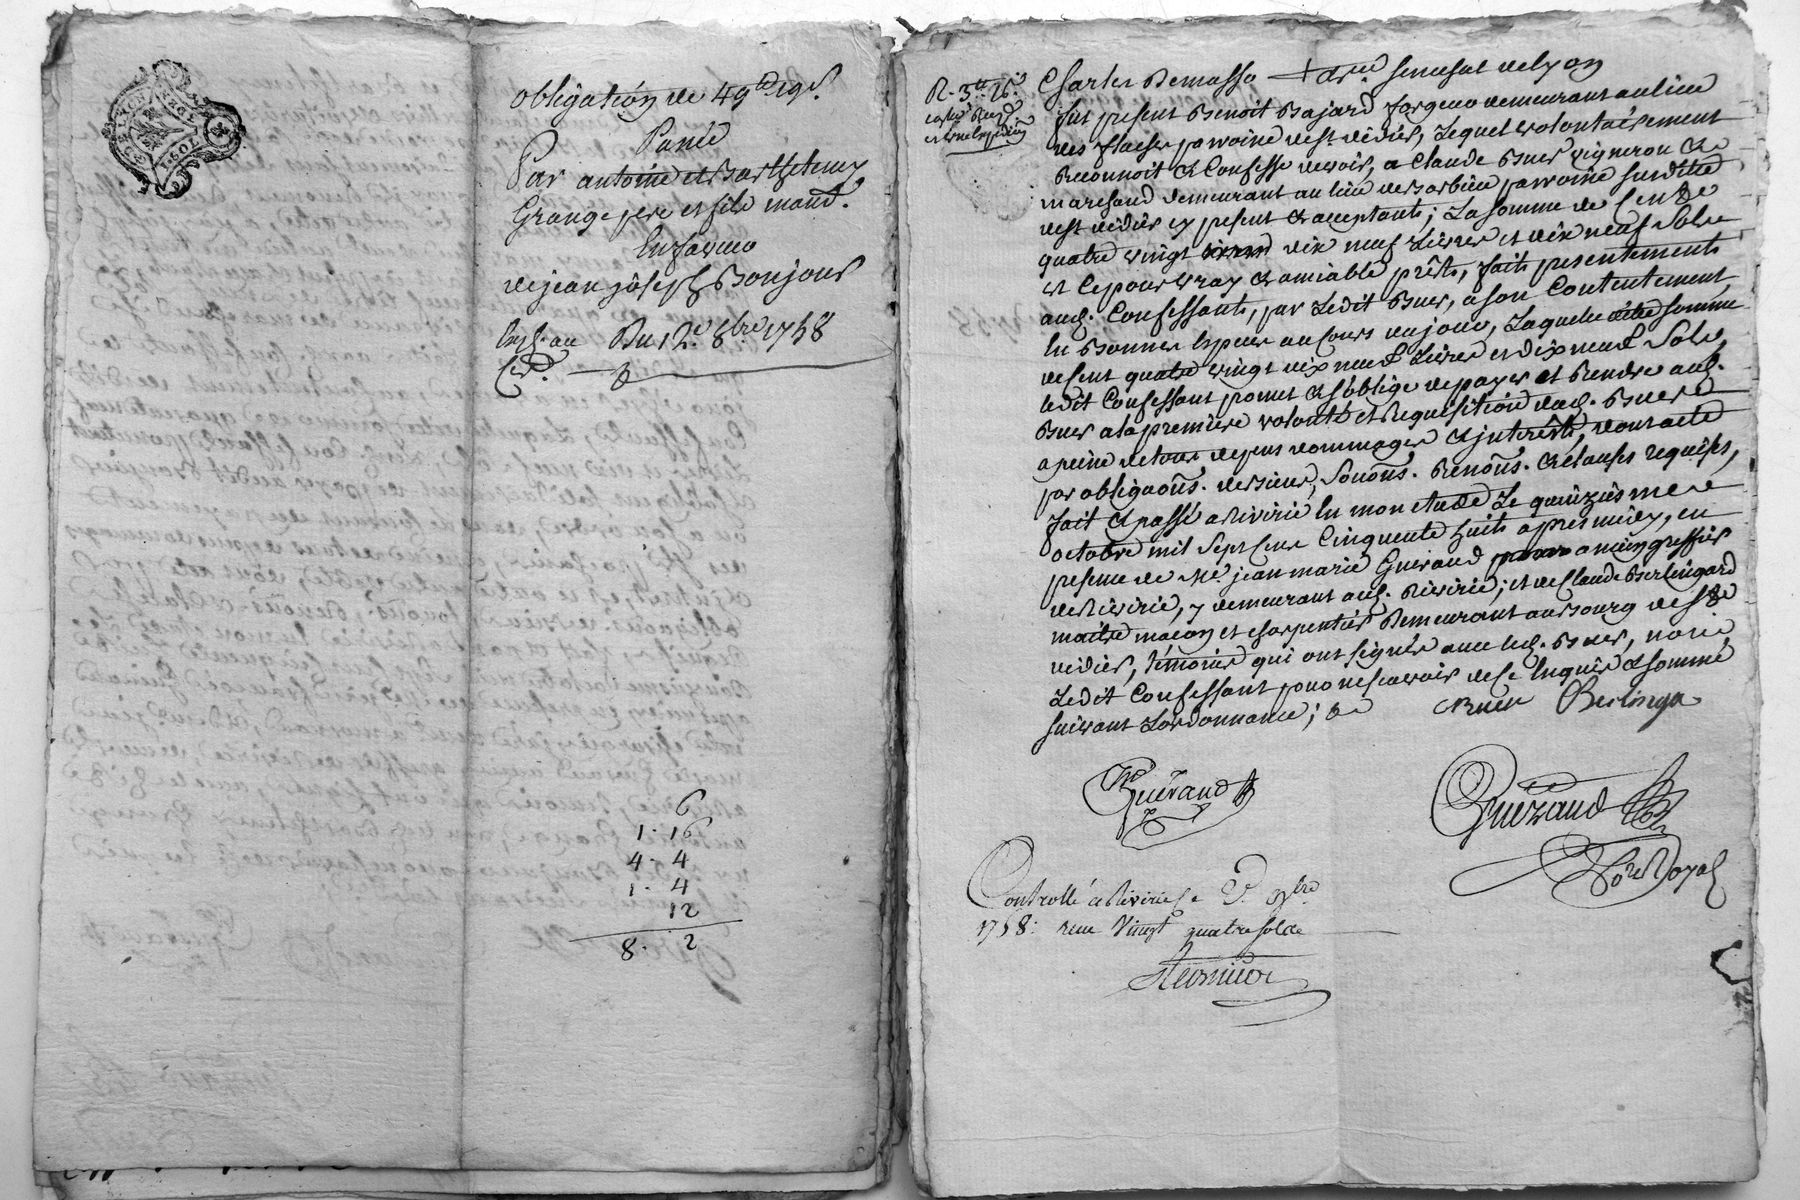 obligation de 49ᵗᵗ 19ˢ.
Passée
Par antoine et Barthelemy
Grange pere et fils mand.
En faveur
de jean joseph Bonjour
Du 12ᵉ 8bre 1758
6
1. 16
4. 4
1. 4
12
8. 2
R. 3ᵗᵗ 16ˢ.
Charles Demasso senechal de lyon
fut present Benoit Bajard forgeur demeurant au lieu
des flaches parroisse de st. didier, Lequel volontairement
Reconnoit & Confesse devoir, a Claude Buer vigneron &
marchand demeurant au lieu de parroisse susditte
de st didier cy present & acceptant; La somme de Cent
quatre vingt dix neuf Livres et dix neuf Sols
et Ce pour vray & amiable prêt, fait presentement
aud. Confessant, par Ledit Buer, a son Contentement
En Bonnes Especes au Cours du jour, Laquelle ditte somme
de Cent quatre vingt dix neuf Livres et dix neuf Sols,
Ledit Confessant promet & s'oblige de payer et Rendre aud.
Buer a la premiere volonté et Requisition dud. Buer
a peine de tous depens dommages & interêts, dont acte
par obligaons. Soumons. Renons. & clauses requises,
fait & passé a Riverie En mon etude Le quinzieme
octobre mil Sept Cent Cinquante huit apres midy, en
presence de Me. jean marie Guerand ancien greffier
de Riverie, y demeurant aud. Riverie; et de Claude Berlingard
maitre maçon et charpentier Demeurant au Bourg de st
didier, témoins qui ont signés avec led. Buer, non
Ledit Confessant pour ne sçavoir de Ce Enquis & sommé
suivant L'ordonnance; &
Buer Berlinga
Guerand
Guerand
No.re Royal
Controllé a Riverie Le
1758: reçu Vingt quatre sols